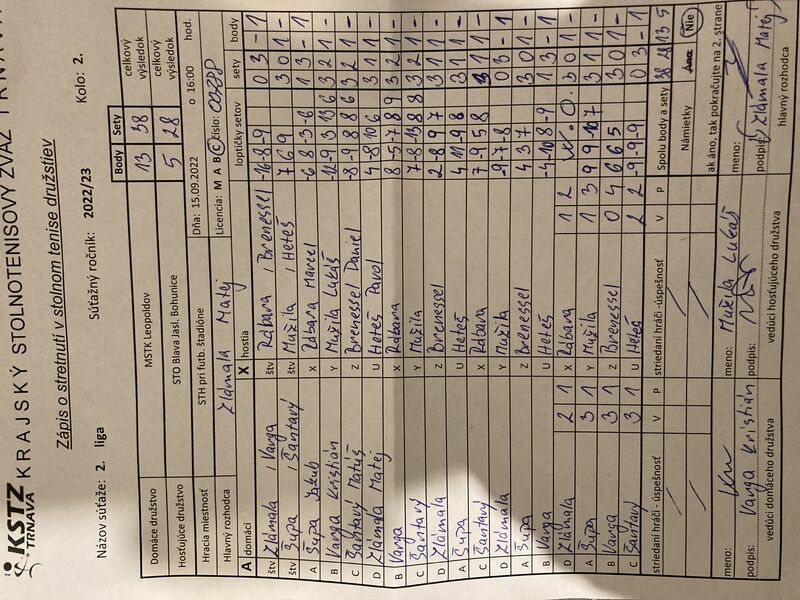 KSTZ TRNAVA
KRAJSKÝ STOLNOTENISOVÝ ZVÄZ TRNAVA
Zápis o stretnutí v stolnom tenise družstiev
Názov súťaže: 2. liga Súťažný ročník: 2022/23 Kolo: 2.
Body Sety
Domáce družstvo MSTK Leopoldov 13 38 celkový výsledok
Hosťujúce družstvo STO Blava Jasl. Bohunice 5 28 celkový výsledok
Hracia miestnosť STH pri futb. štadióne Dňa: 15.09.2022 o 16:00 hod.
Hlavný rozhodca Zldmala Matej Licencia: M A B C číslo:
A domáci X hostia loptičky setov sety body
štv Zldmala / Varga štv Rábara / Brenessel -16 -8 -9 0 3 - 1
štv Šupa / Šantavý štv Mužila / Heteš 7 6 9 3 0 1 -
A Šupa Jakub X Rábara Marcel -6 8 -3 -6 1 3 - 1
B Varga Kristián Y Mužila Lukáš -12 -9 3 13 6 3 2 1 -
C Šantavý Matúš Z Brenessel Daniel -8 -9 8 8 6 3 2 1 -
D Zldmala Matej U Heteš Pavol 4 -8 10 6 3 1 1 -
B Varga X Rábara 8 -5 -7 8 9 3 2 1 -
C Šantavý Y Mužila 7 -8 -13 8 8 3 2 1 -
D Zldmala Z Brenessel 2 -8 9 7 3 1 1 -
A Šupa U Heteš 4 11 -9 8 3 1 1 -
C Šantavý X Rábara 7 -9 5 8 3 1 1 -
D Zldmala Y Mužila -9 -7 -8 0 3 - 1
A Šupa Z Brenessel 4 3 7 3 0 1 -
B Varga U Heteš -4 -10 8 -9 1 3 - 1
D Zldmala 2 1 X Rábara 1 2 W. O. 3 0 1 -
A Šupa 3 1 Y Mužila 1 3 9 9 -10 7 3 1 1 -
B Varga 3 1 Z Brenessel 0 4 6 6 5 3 0 1 -
C Šantavý 3 1 U Heteš 2 2 -9 -9 -9 0 3 - 1
striedaní hráči - úspešnosť V P striedaní hráči -úspešnosť V P Spolu body a sety 38 28 13 5
Námietky Áno Nie
ak áno, tak pokračujte na 2. strane
meno: meno: Mužila Lukáš meno:
podpis: Varga Kristián podpis: podpis: Zldmala Matej
vedúci domáceho družstva vedúci hosťujúceho družstva hlavný rozhodca